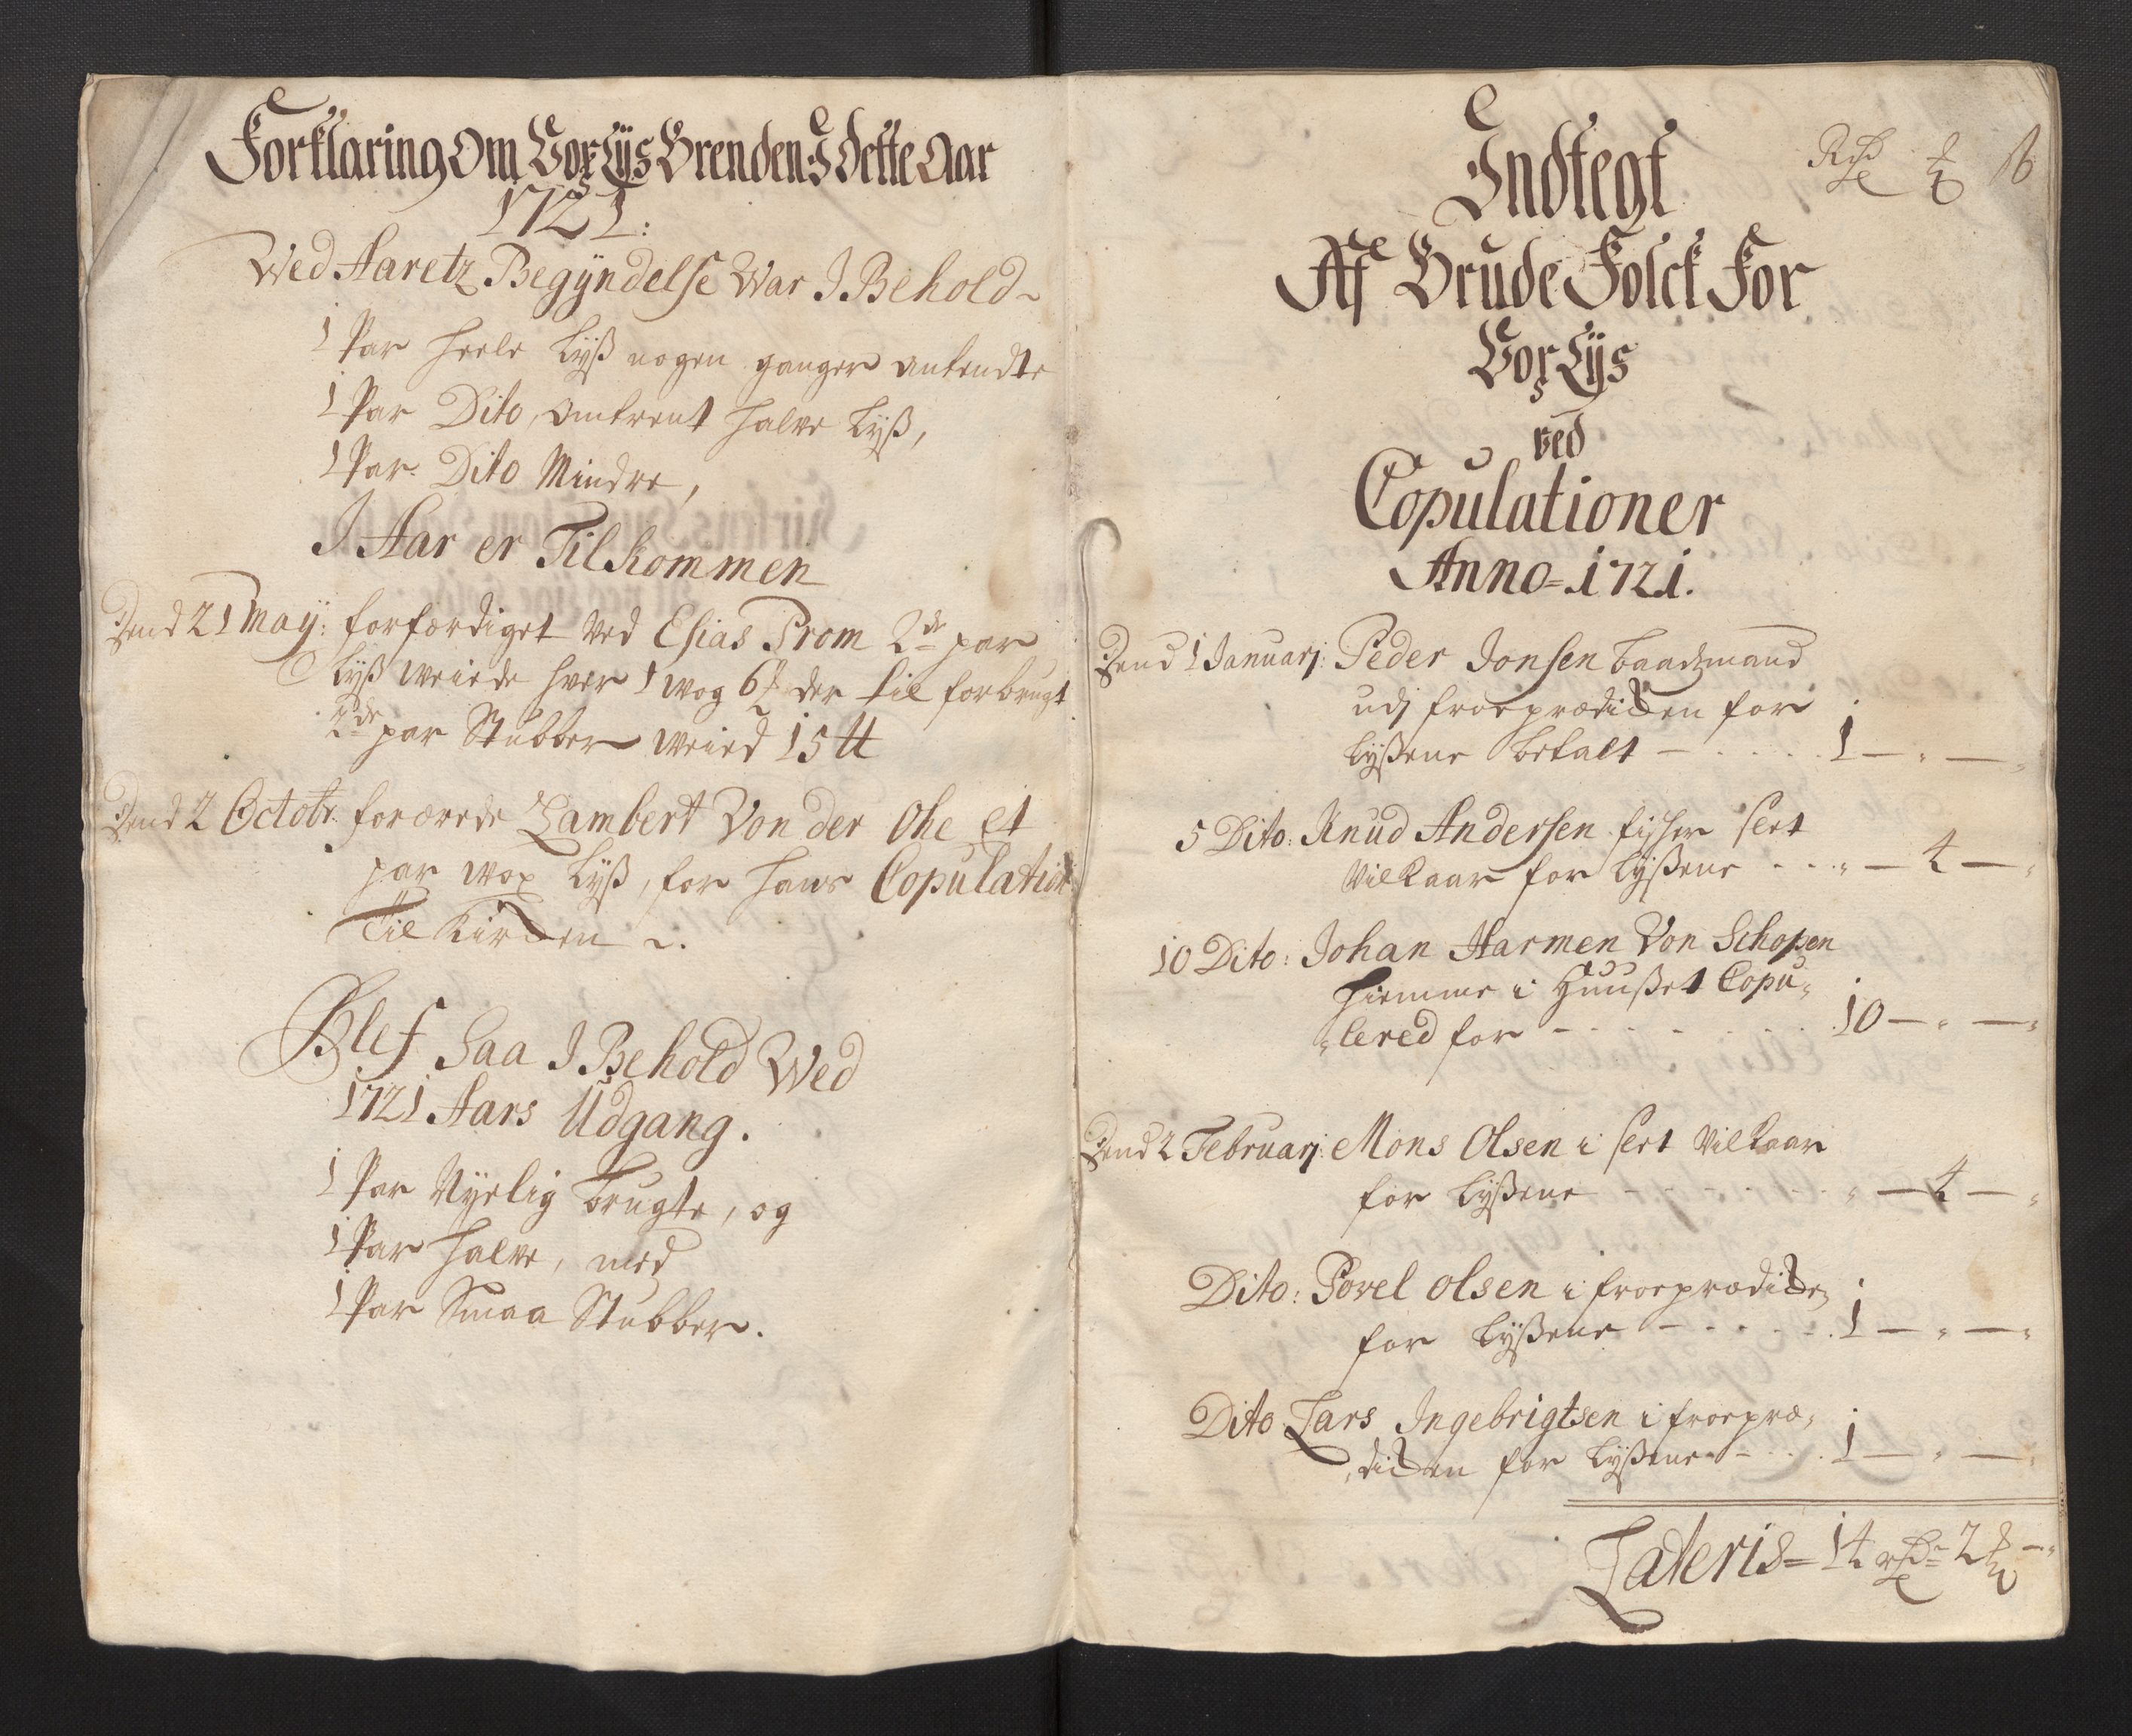 Forklaring Om Vox Lÿs Brenden I dette Aar
1721:
Wed Aaretz Begÿndelse War I Behold
1 Par heele Lÿß nogen ganger antendte
1 Par Dito, omtrent halve Lÿß,
1 Par Dito Mindre,
I Aar er Tilkommen
Dend 21 Maÿ: forfærdiget ved Esias Prom 2de par
Lÿß weiede hver 1 wog 6 der til forbrugt
2de par Stubber weied 15 ℔
Dend 2 Octobr: forærede Lambert Von der Ohe et
par wox Lÿß, for hans Copulation
Til Kircken
Blef Saa I Behold Wed
1721 Aars Udgang.
1 Par Nyelig brugte, og
1 Par halve, med
1 Par Smaa Stubber.
Indtegt
Rdr ₰ ß
Af Brude Folck For
Vox Lÿs
ved
Copulationer
Anno 1721.
Dend 1 Januarj: Peder Jonsen baadzmand
udj froeprædicken for
lÿßene betalt - 1 - " - "
5 Dito: Knud Andersen fisher slet
vilkaar for lÿßene - " - 4 - "
10 Dito: Johan Harmen Von Schopen
hiemme i Huußet Copu„
„lered for - 10 - " - "
Dend 2 Februarj: Mons Olsen i slet vilkaar
for lÿßene - " - 4 - "
Dito: Povel Olsen i froeprædicken
for lÿßene - 1 - " - "
Dito Lars Ingebrigtsen i froepræ„
„dicken for lÿßene - 1 - " - "
Lateris = 14 rdr 2 ₰ - "